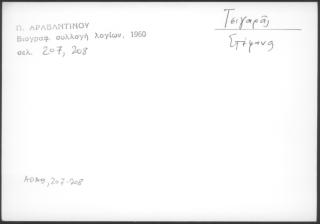 Π. ΑΡΑΒΑΝΤΙΝΟΥ
Βιογραφ. συλλογή λογίων, 1960
σελ. 207, 208
Τσιγαρᾶς
Στέφανος
207-208